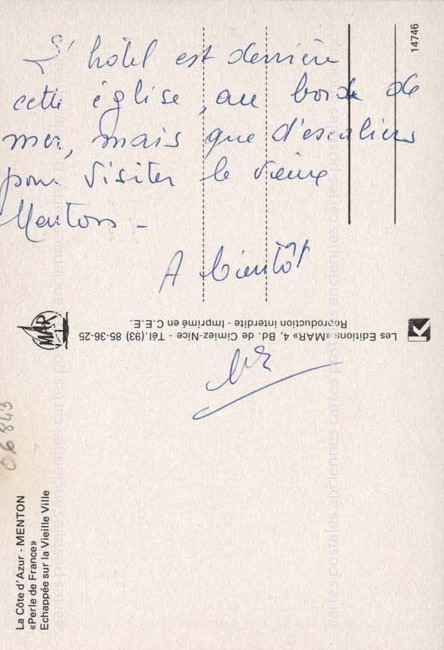 L'hôtel est derrière
cette église, au bord de
mer, mais que d'escaliers
pour visiter le vieux
Menton -
A bientôt
14746
Les Editions «MAR» 4, Bd. de Cimiez-Nice - Tél.(93) 85-36-25
Reproduction interdite - Imprimé en C.E.E.
MAR
06 843
La Côte d'Azur - MENTON
«Perle de France»
Echappée sur la Vieille Ville
cartes postales anciennes